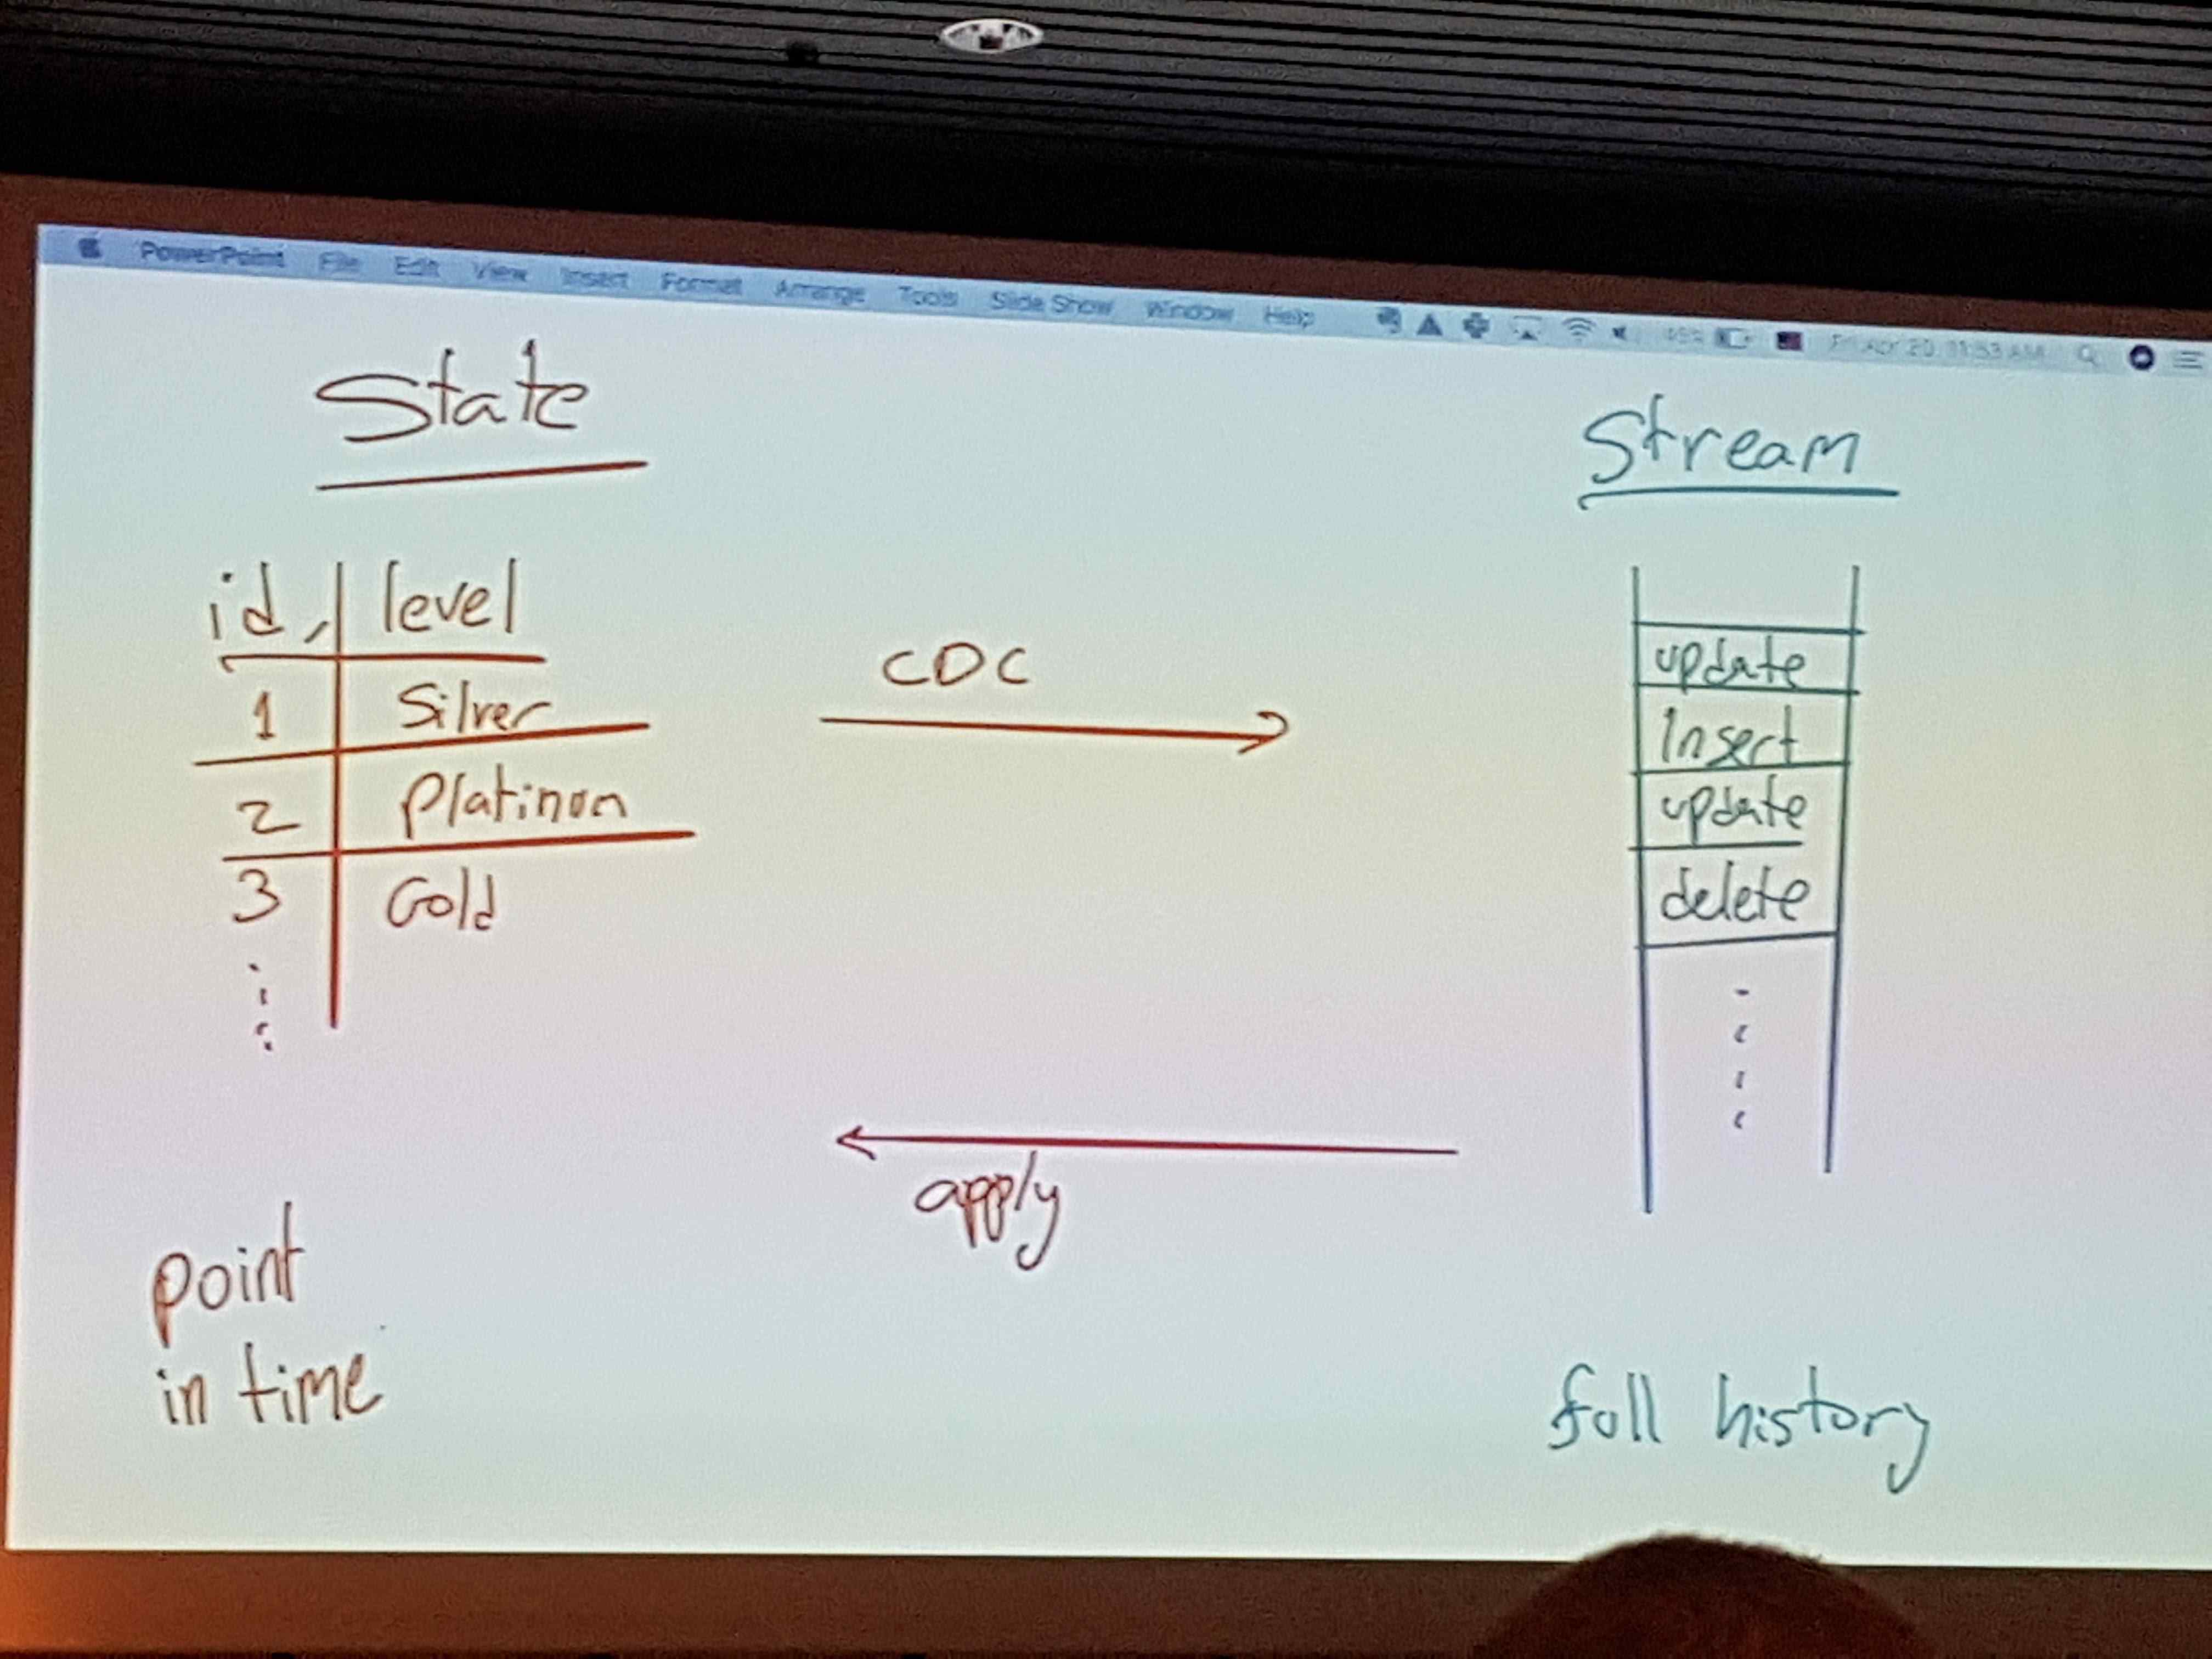 PowerPoint File Edit View Insert Format Arrange Tools Slide Show Window Help Fri Apr 20 11:53 AM
State
Stream
id, level
1 Silver
2 Platinum
3 Gold
CDC
update
Insert
update
delete
apply
point
in time
full history